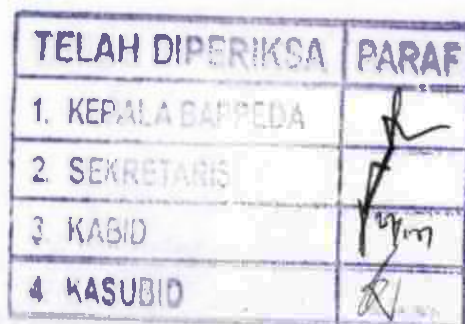 TELAH DIPERIKSA PARAF
1. KEPALA BAPPEDA
2. SEKRETARIS
3. KABID
4 KASUBID